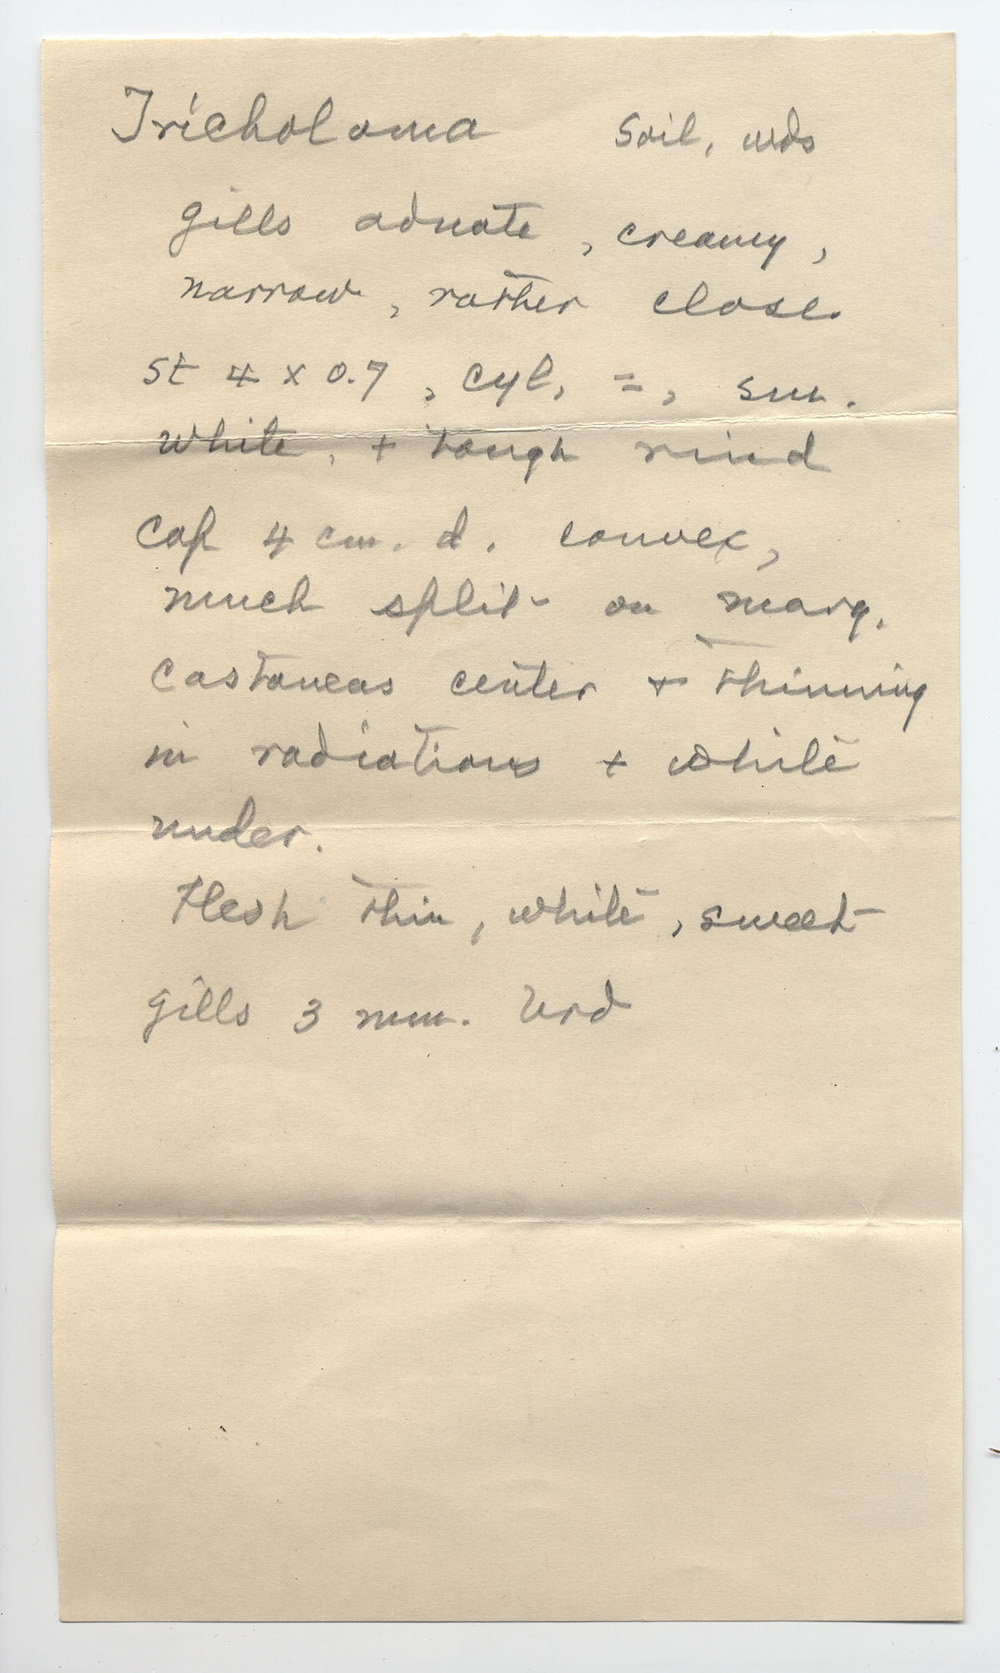 Tricholoma Soil, wds
gills adnate, creamy,
narrow, rather close.
St 4 x 0.7, cyl, =, sm.
white, + tough rind
Cap 4 cm. d. convex,
much split on marg.
Castaneas center + thinning
in radiations + white
under.
Flesh thin, white, sweet
gills 3 mm.